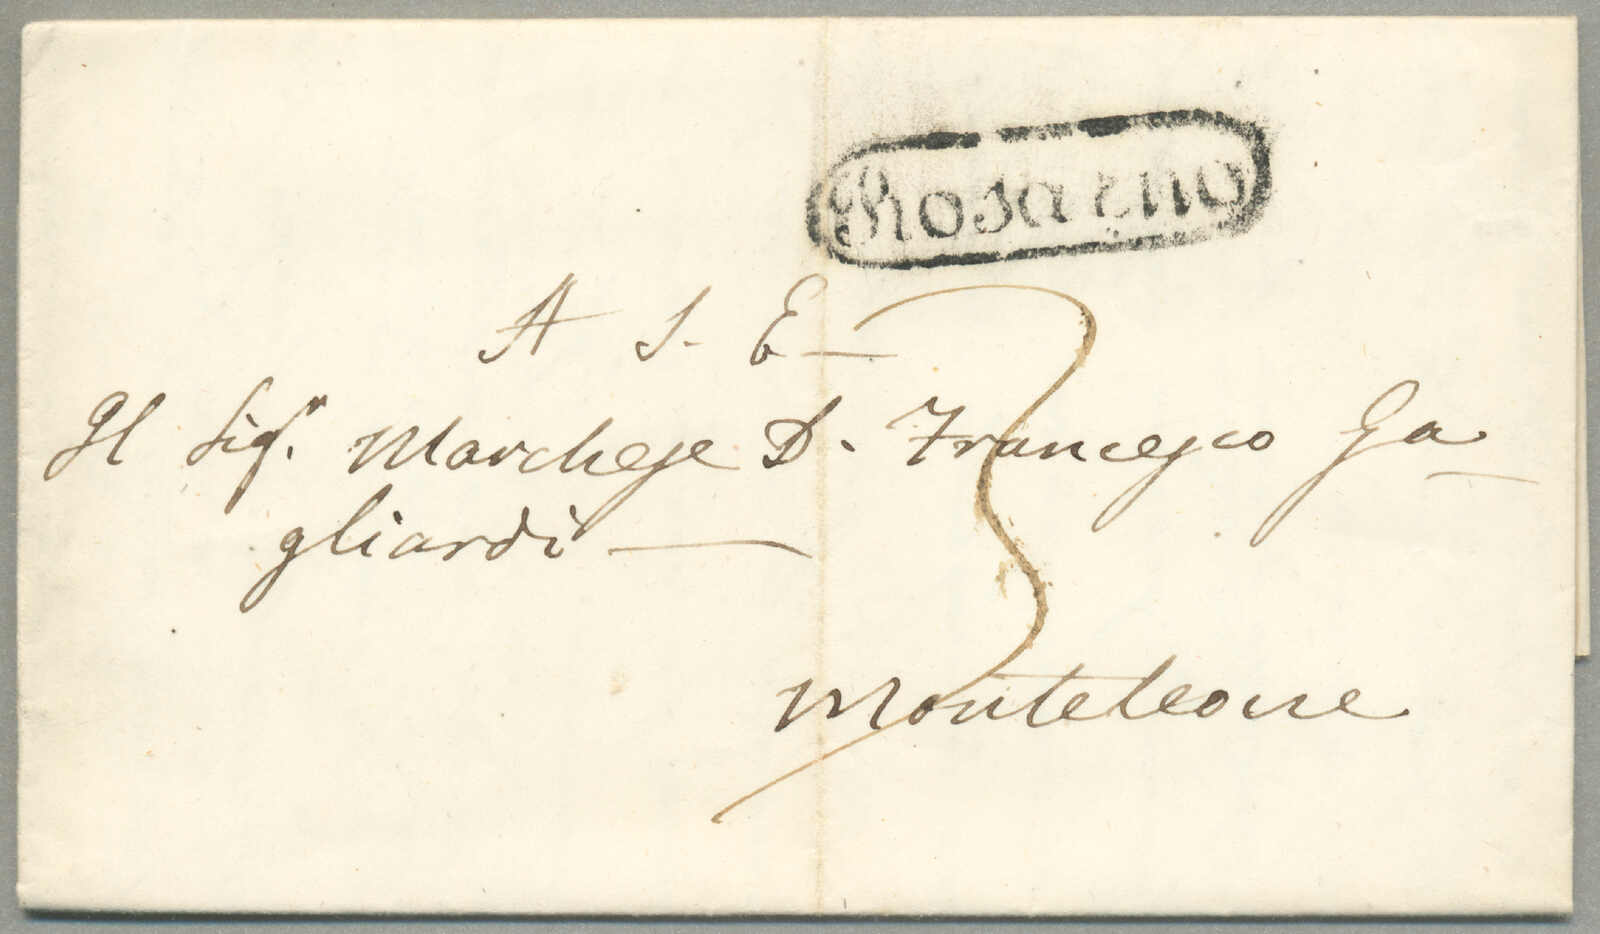 Rosarno
A S. E
3
Il Sigr. Marchese D. Francesco Ga
gliardi
Monteleone